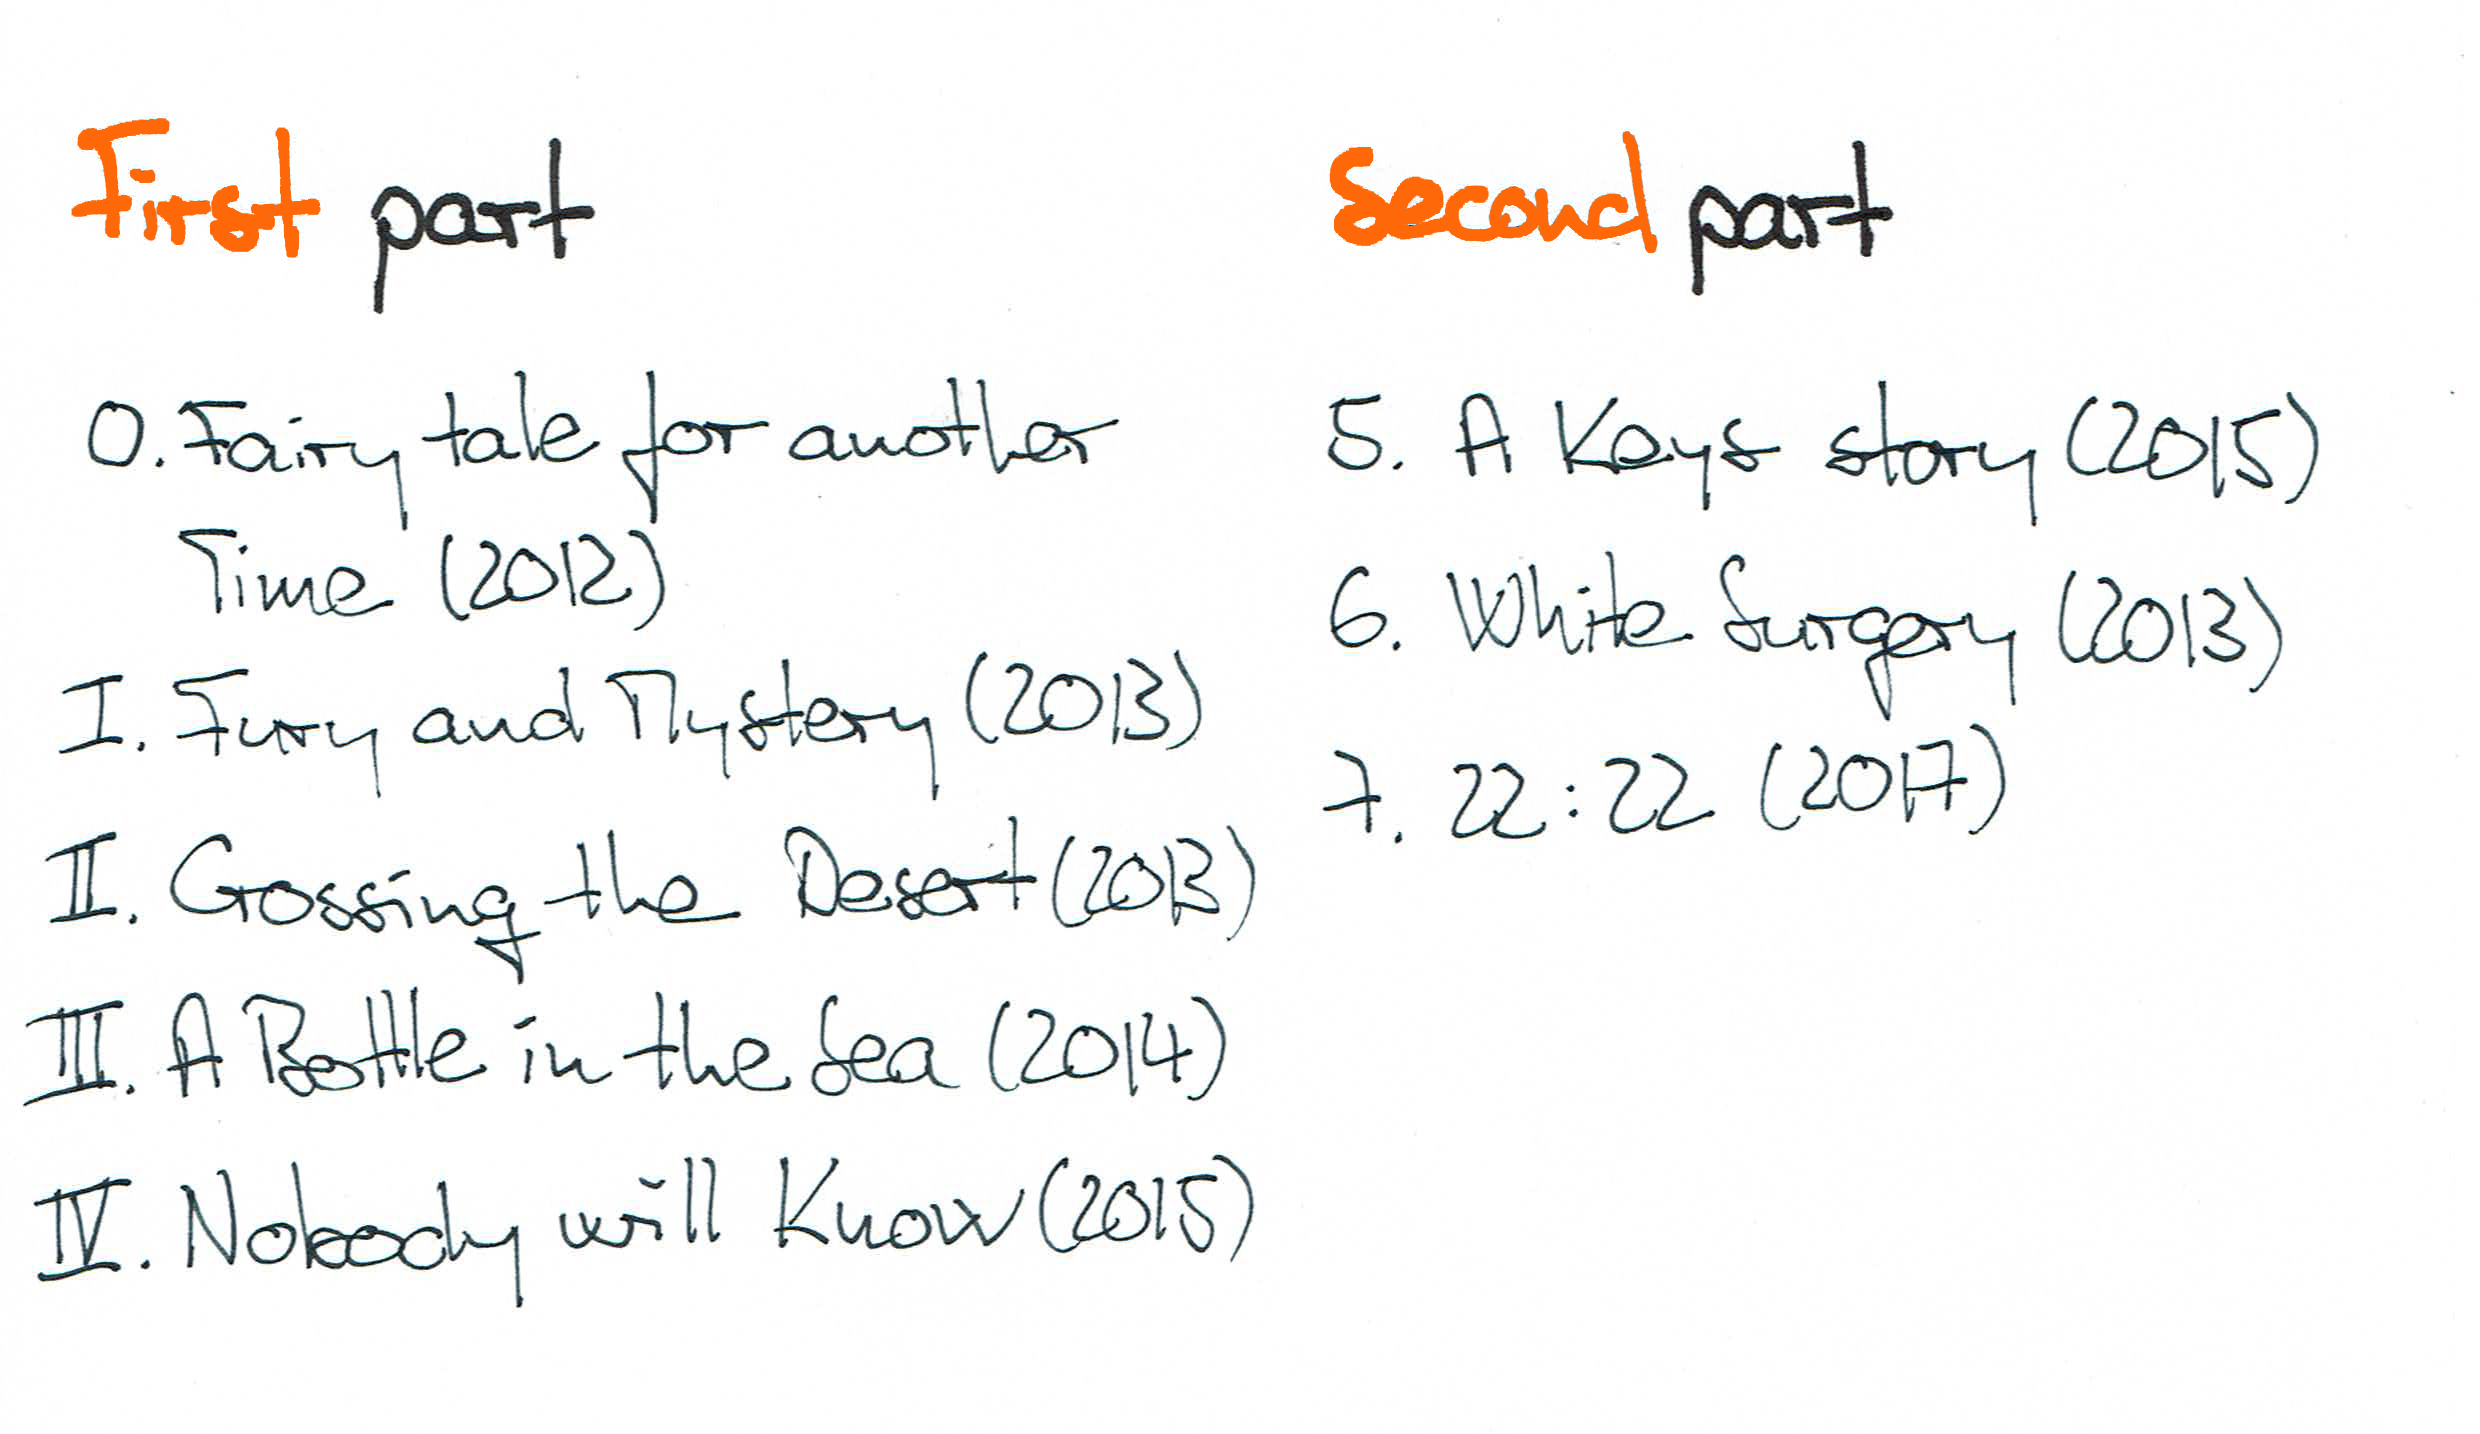 First part
0. Fairy tale for another
Time (2012)
I. Fury and Mystery (2013)
II. Crossing the Desert (2013)
III. A Bottle in the Sea (2014)
IV. Nobody will Know (2015)
Second part
5. A Keys story (2015)
6. White Surgery (2013)
7. 22:22 (2017)